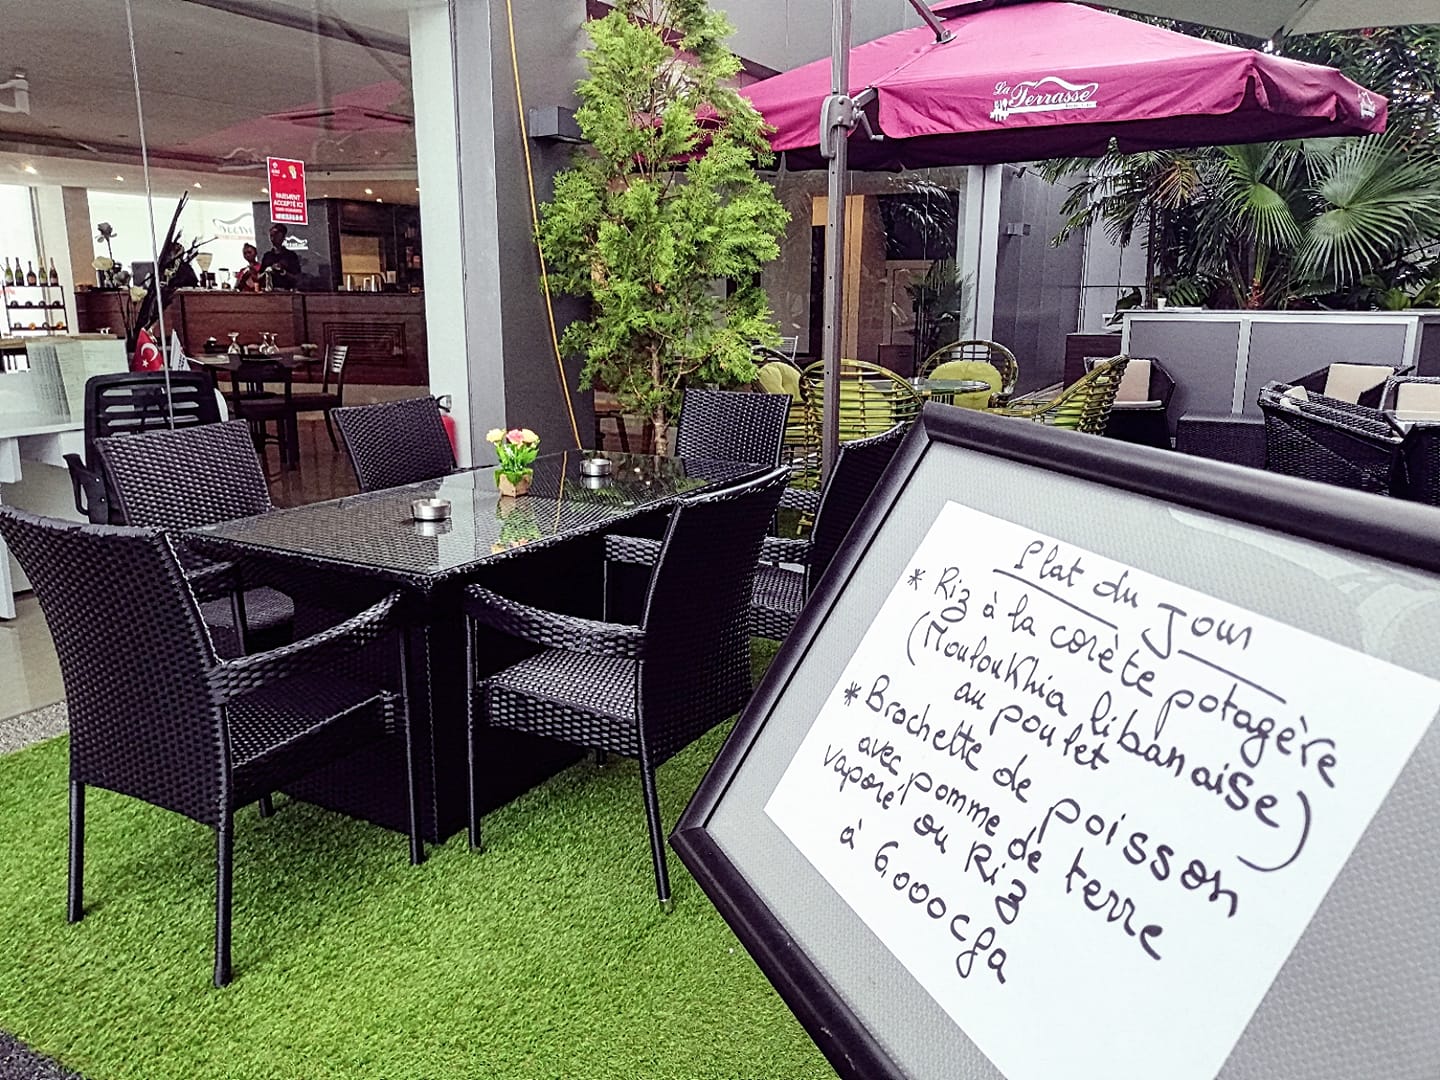 La Terrasse
PAIEMENT
ACCEPTÉ ICI
Plat du Jour
* Riz à la corète potagère
(Mouloukhia libanaise)
au poulet
* Brochette de poisson
avec pomme de terre
vaporé ou Riz
à 6.000 cfa